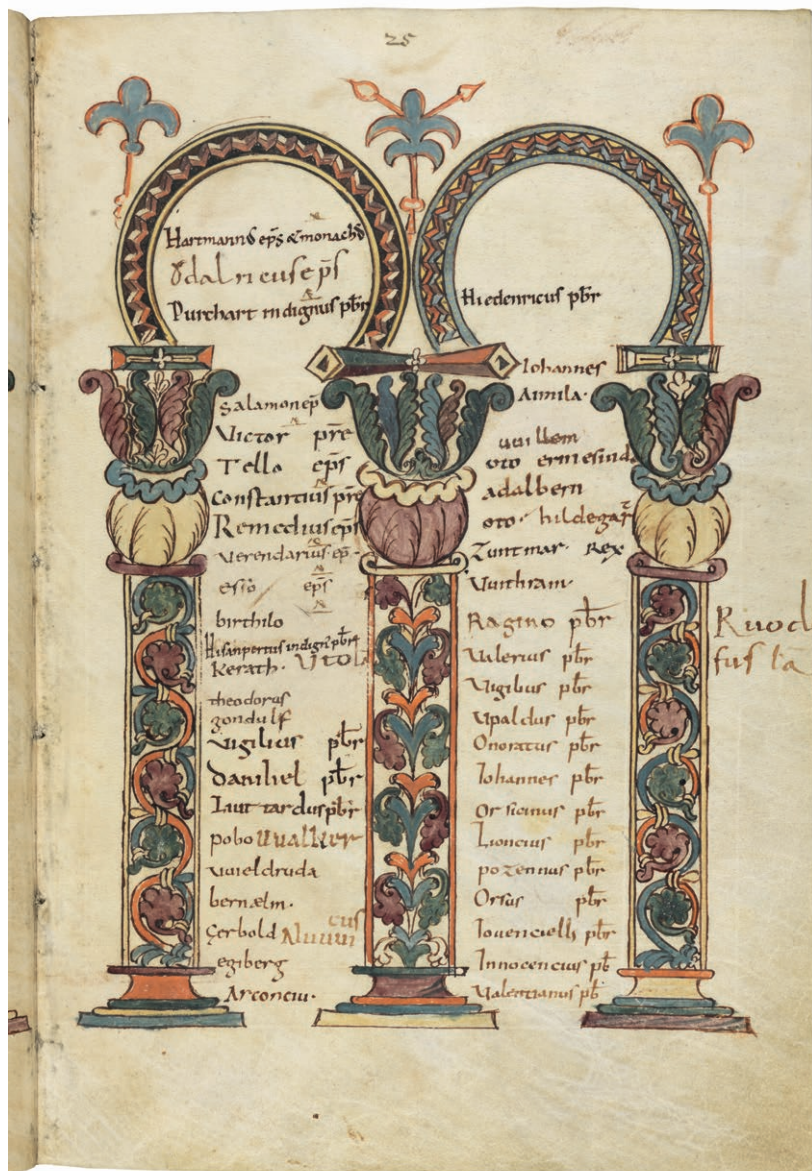 25
Hartmannus ep̄s & monachus
Ŏdalricus ep̄s
Purchart indignus pb̄r
Salamon ep̄
Victor pr̄e
Tello ep̄s
Constantius pr̄e
Remedius ep̄s
Verendarius ep̄
esso ep̄s
birthilo
Hisanpertus indign' pb̄r
Kerath· Vtol
theodorus
gondulf
Vigilius pb̄r
Danihel pb̄r
Lauttardus pb̄r
pobo Uualker
Vuieldruda
bernælm·
Gerbold
egiberg
Arconciu·
Hiedenricus pb̄r
Iohannes
Aimila·
uuillem
oto ermesinda
adalbern
oto· hildegar
Zuntmar· Rex
Vuithram·
Ragino pb̄r
Valerius pb̄r
Vigibus pb̄r
Vpaldus pb̄r
Onoratus pb̄r
Iohannes pb̄r
Orsicinus pb̄r
Lioncius pb̄r
pozennus pb̄r
Orsus pb̄r
Iouenciells pb̄r
Innocencius pb̄
Valentianus pb̄
Ruod
fus la